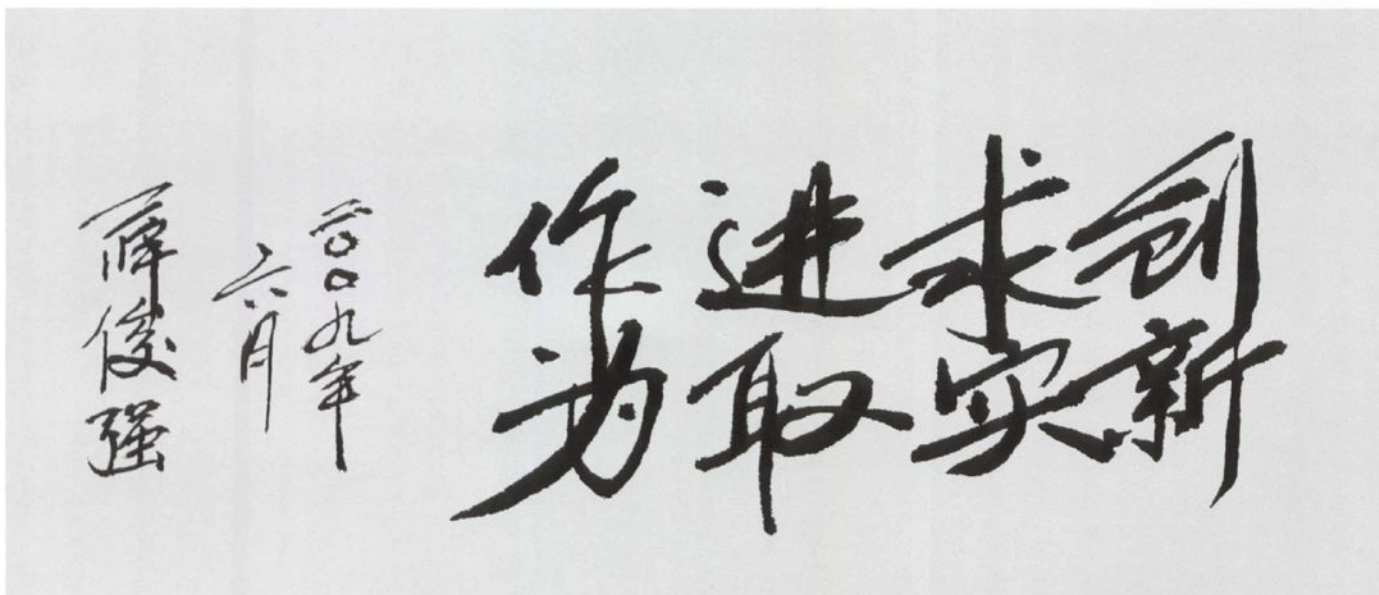 创新
求实
进取
作为
二〇〇九年
六月
薛俊强